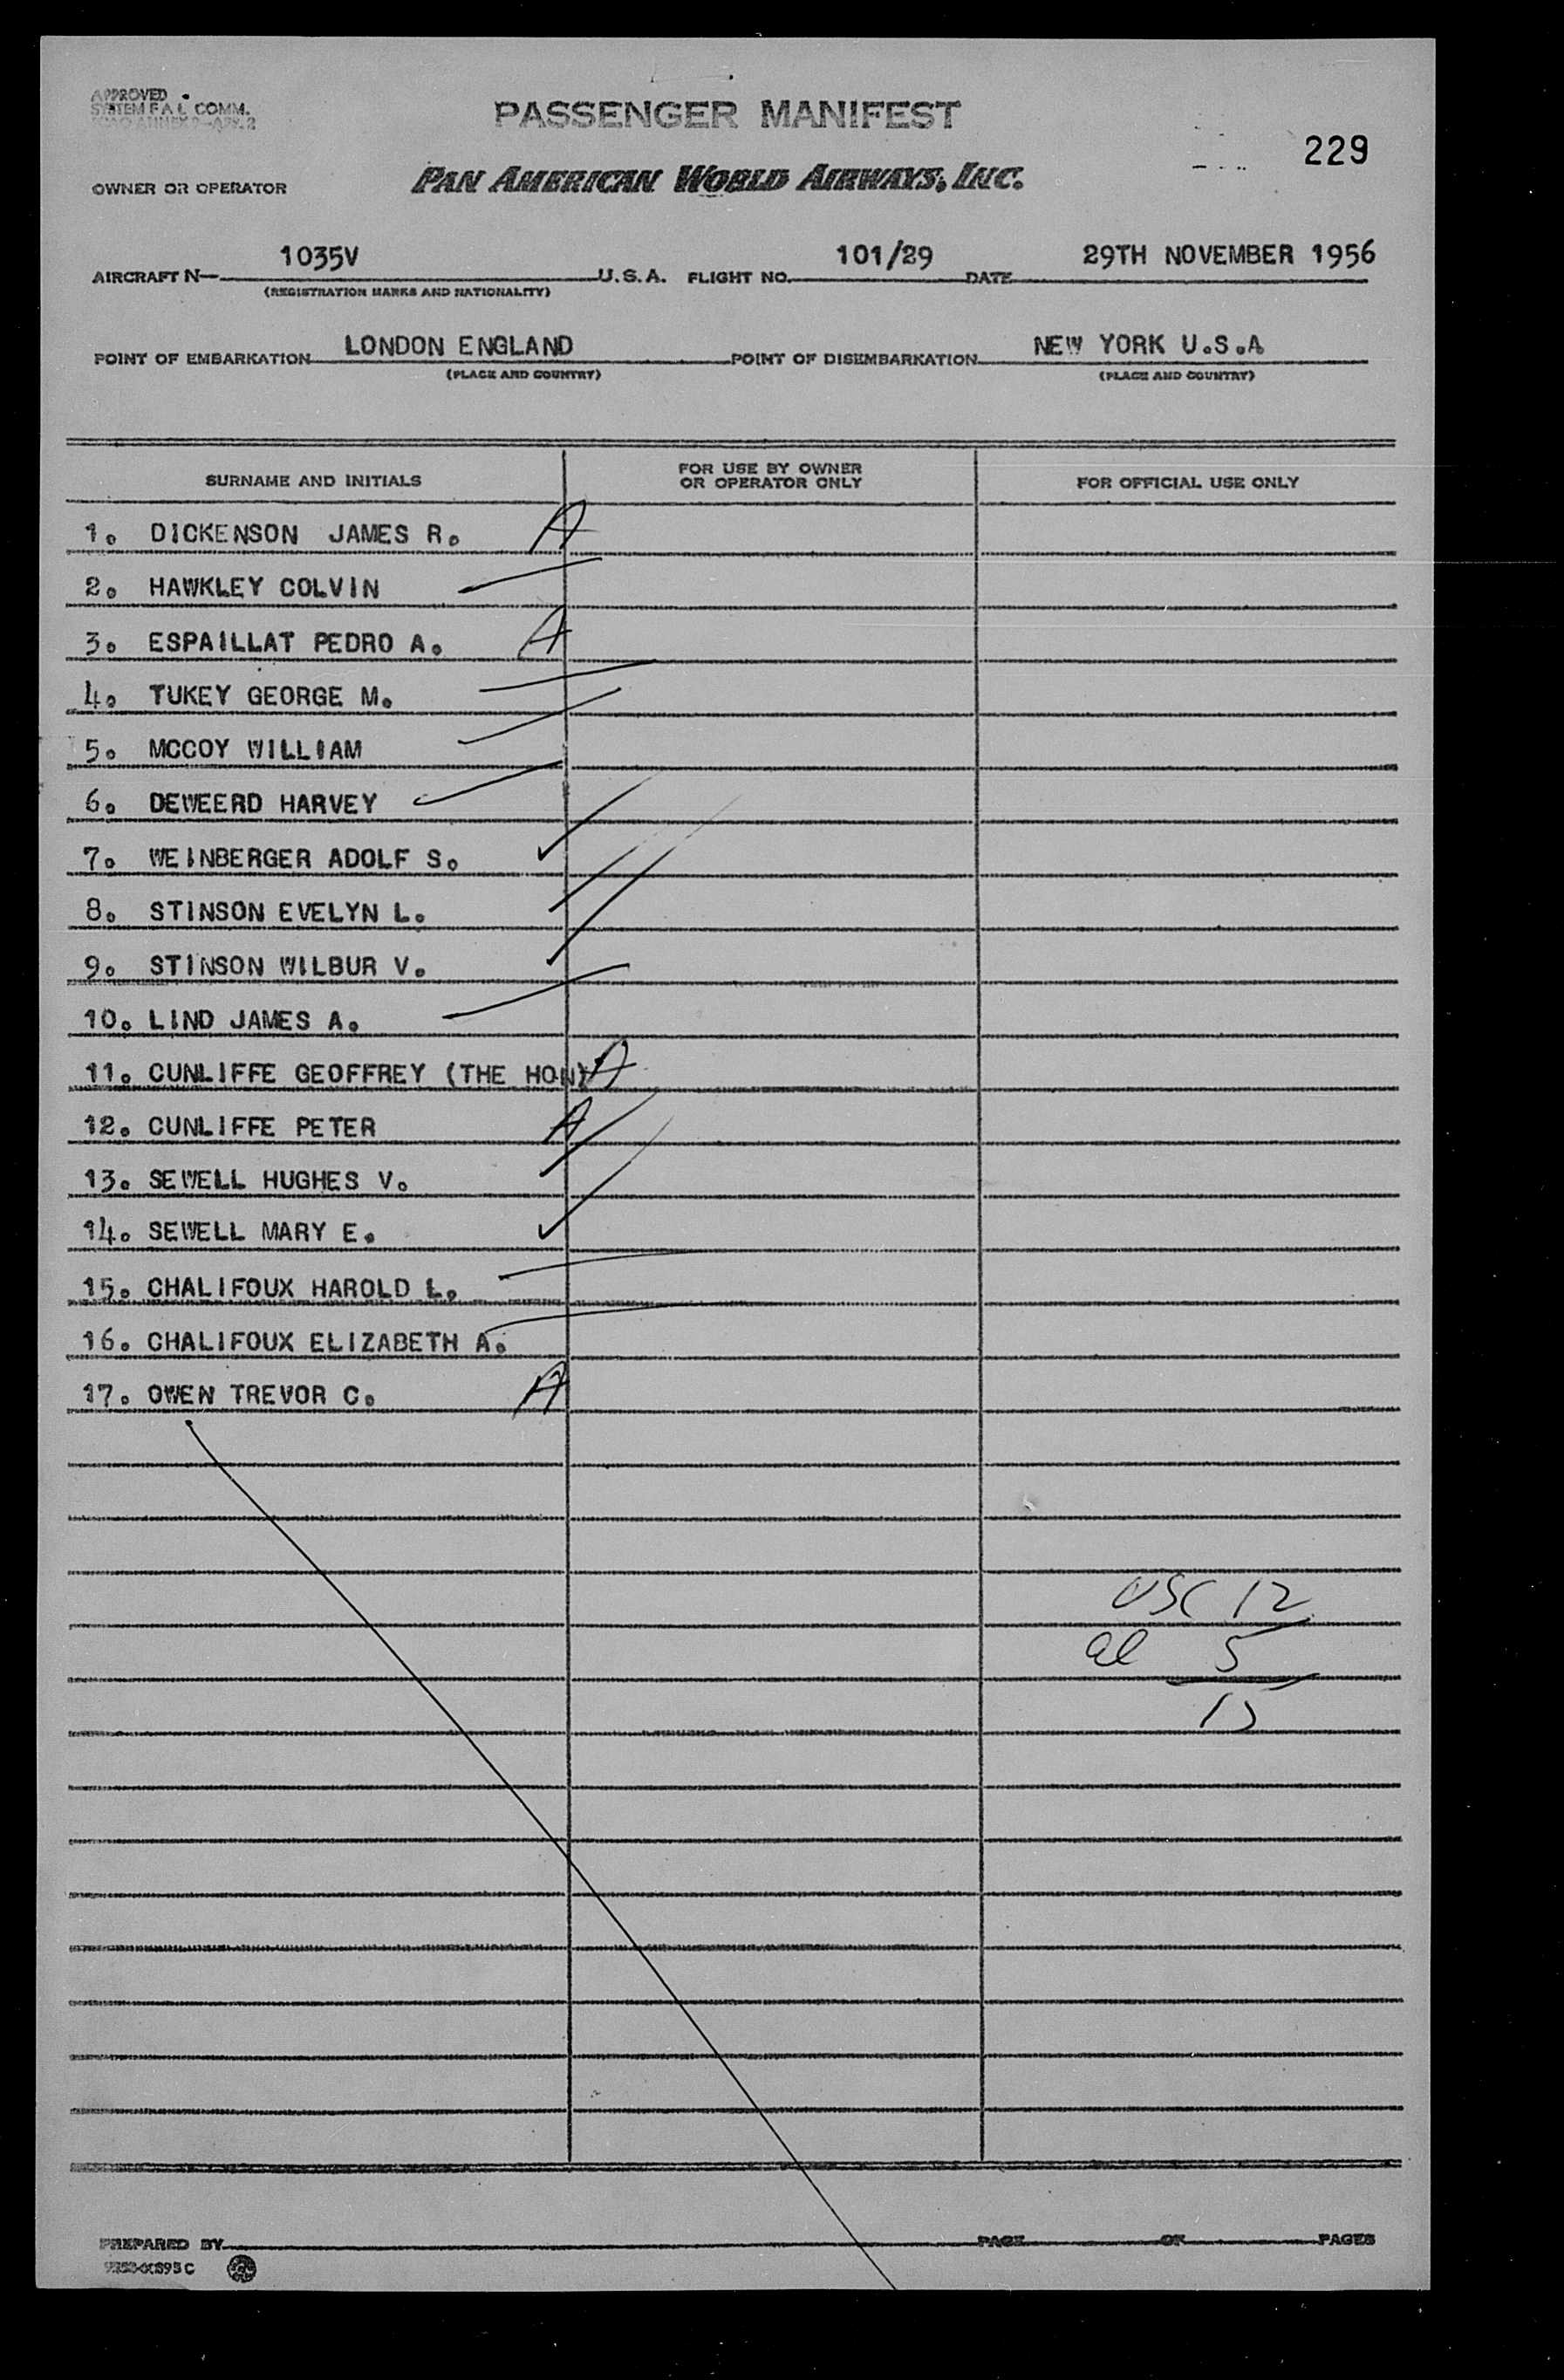 APPROVED
SYSTEM F.A.L. COMM.
PASSENGER MANIFEST
229
OWNER OR OPERATOR PAN AMERICAN WORLD AIRWAYS, INC.
AIRCRAFT N— 1035V U.S.A. FLIGHT NO. 101/29 DATE 29TH NOVEMBER 1956
(REGISTRATION MARKS AND NATIONALITY)
POINT OF EMBARKATION LONDON ENGLAND POINT OF DISEMBARKATION NEW YORK U.S.A
(PLACE AND COUNTRY) (PLACE AND COUNTRY)
SURNAME AND INITIALS FOR USE BY OWNER OR OPERATOR ONLY FOR OFFICIAL USE ONLY
1. DICKENSON JAMES R. A
2. HAWKLEY COLVIN
3. ESPAILLAT PEDRO A. A
4. TUKEY GEORGE M.
5. MCCOY WILLIAM
6. DEWEERD HARVEY
7. WEINBERGER ADOLF S.
8. STINSON EVELYN L.
9. STINSON WILBUR V.
10. LIND JAMES A.
11. CUNLIFFE GEOFFREY (THE HON) A
12. CUNLIFFE PETER A
13. SEWELL HUGHES V.
14. SEWELL MARY E.
15. CHALIFOUX HAROLD L.
16. CHALIFOUX ELIZABETH A.
17. OWEN TREVOR C. A
USC 12
al 5
17
PREPARED BY PAGE OF PAGES